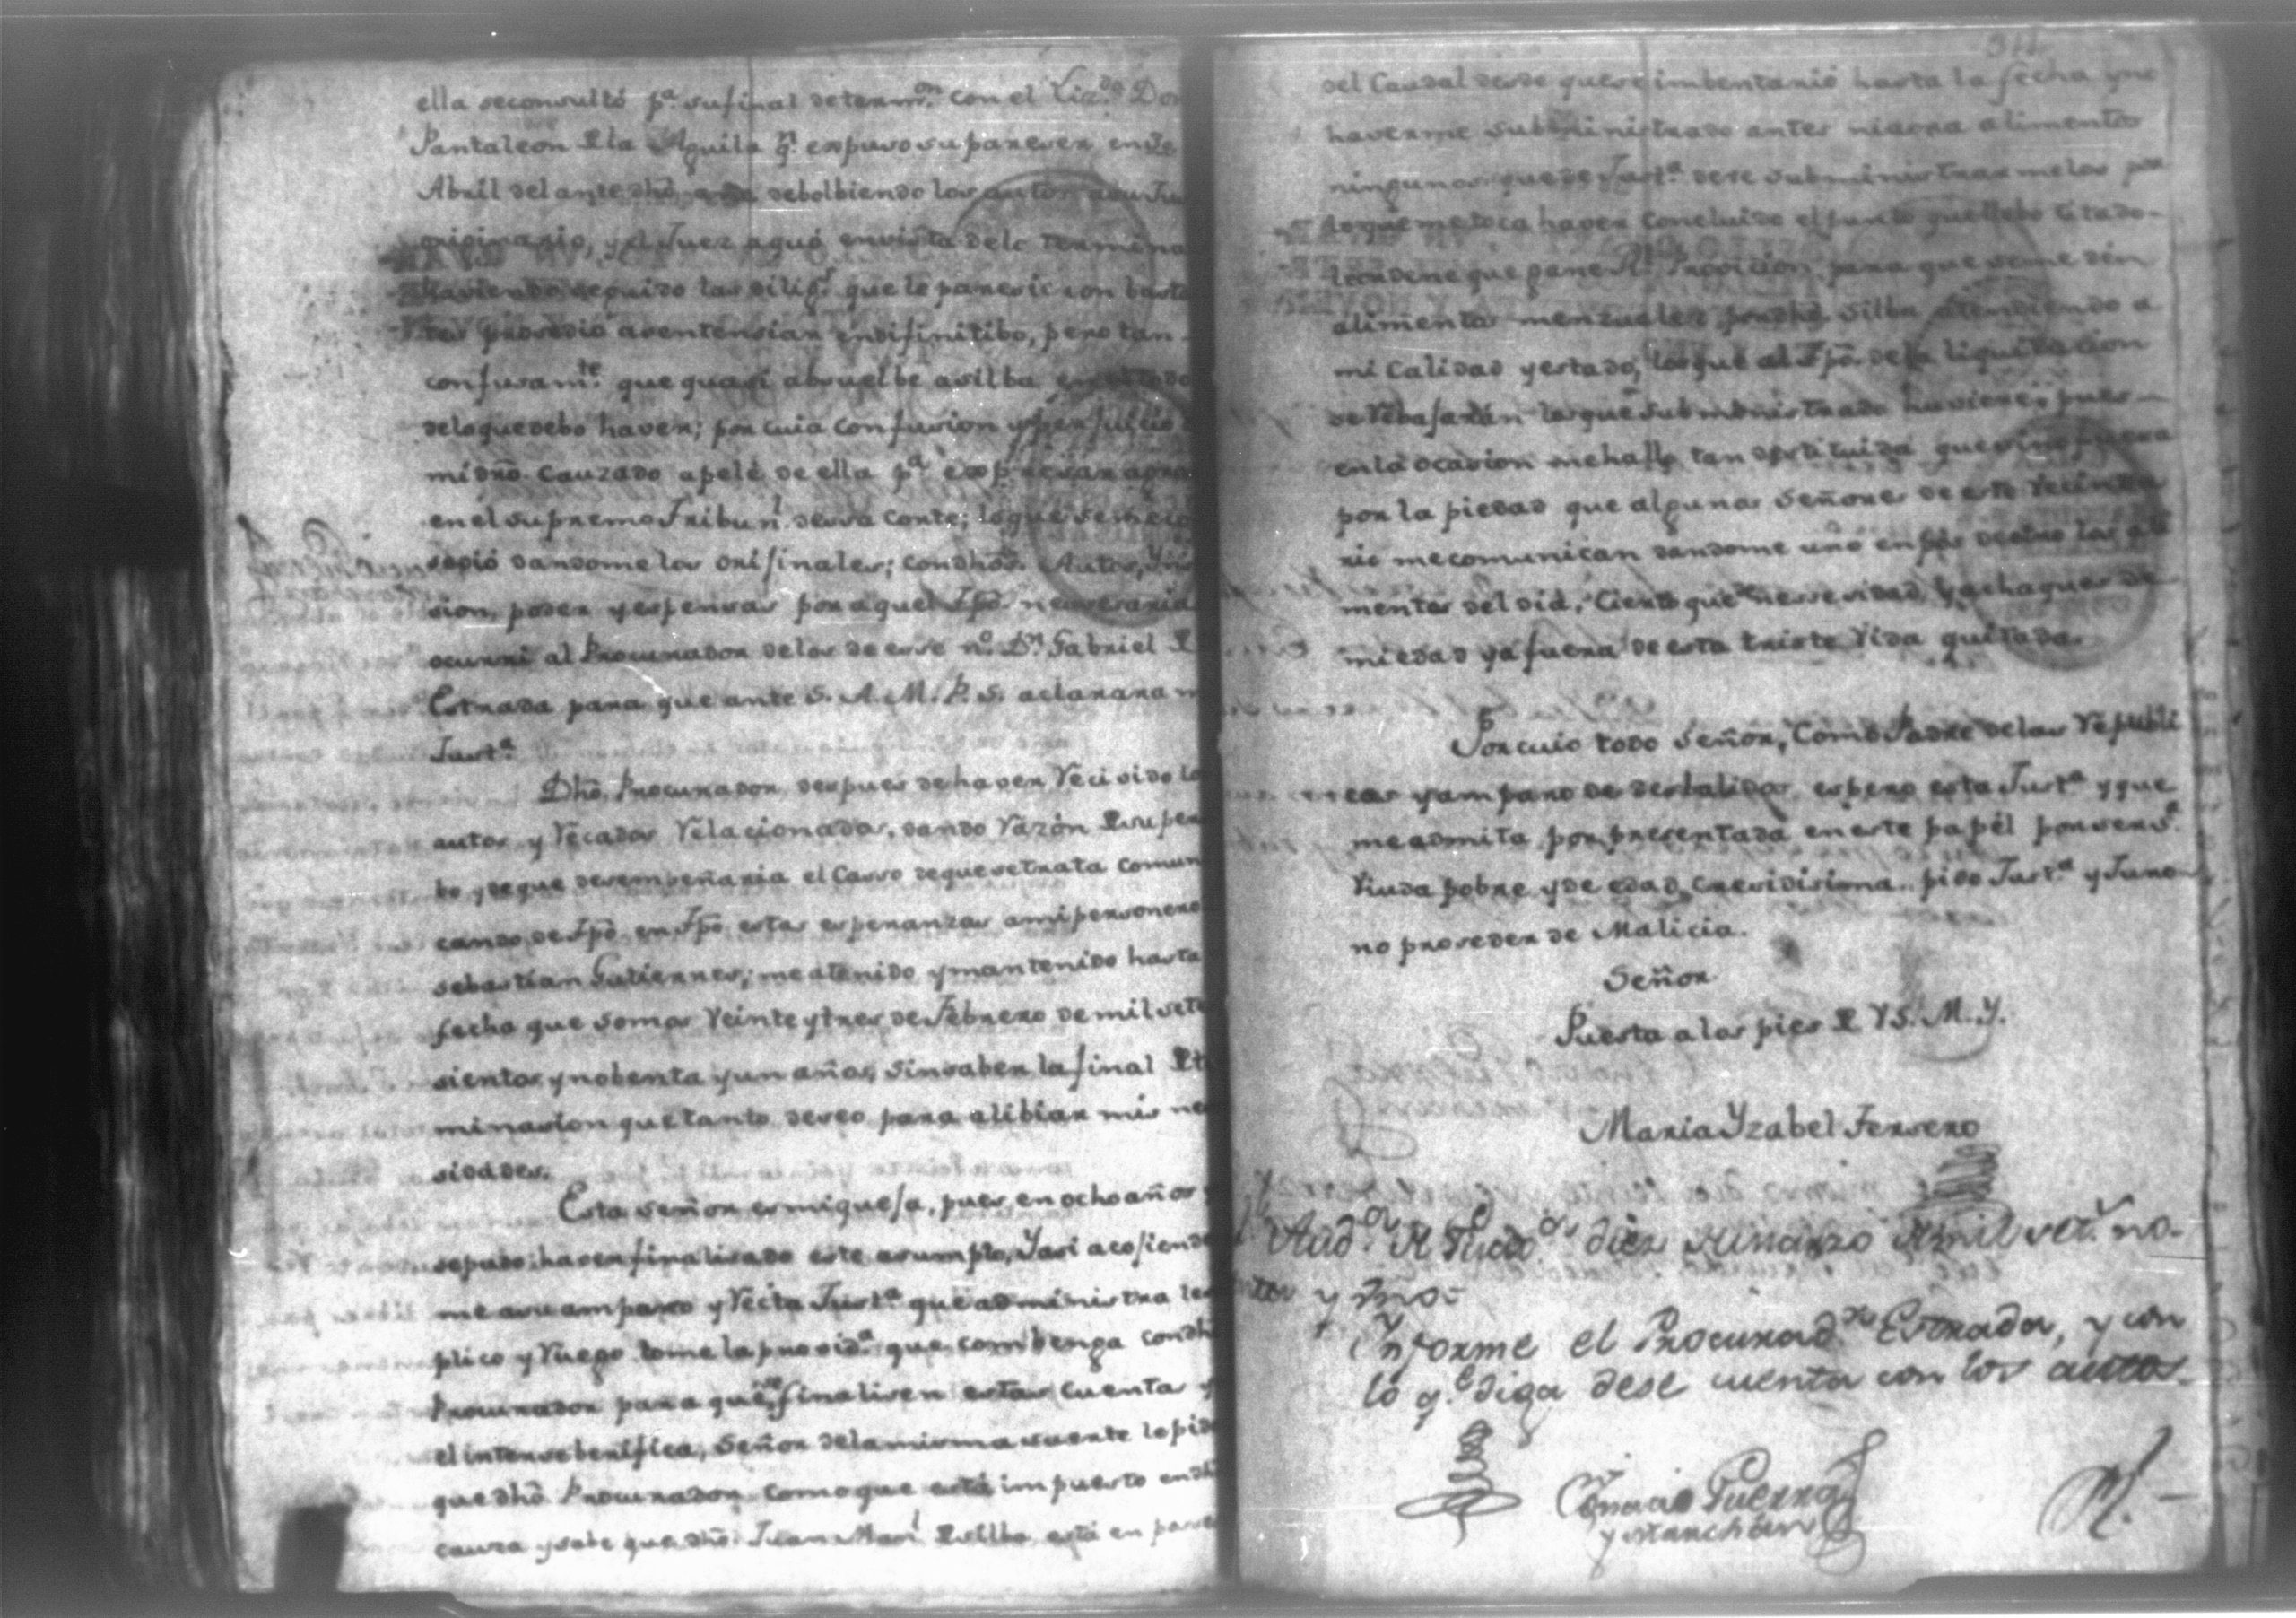 ella seconsultó pª. sufinal determon. con el Lizdo. Don
Pantaleon de la Aguila qn. expuso su pareser en de
Abril del ante dhõ año debolbiendo los autos asu Ju
originario, y el Juez aguó envista delo termina
haviendo seguido las diligs. que le paresieron basta
tes prosedió asentensiar endifinitibo, pero tan
confusamte. que quasi absuelbe asilba en el todo
deloquedebo haver; por cuia confusion y perjuicio
mi drõ. cauzado apelé de ella pª. expresar agra
enel supremo Tribunl. dessa Corte; loque seme con
sedió dandome los orijinales; con dhõs. Autos,
sion, poder yespensas por aquel Tpõ. nesesarias
ocurri al Procurador delos de esse nº. Dn. Gabriel de
Estrada para que ante S. A. M. P. S. aclarara m
Justª.
Dhõ. Procurador despues de haver Recivido lo
autos y Recados Relacionados, dando Razón de su per
bo y de que desempeñaria el Casso de que setrata comun
cando de Tpõ. en Tpõ. estas esperanzas ami personero
sebastian Gutierres; me atenido y mantenido hasta
fecha que somos Veinte y tres de Febrero de mil sete
sientos y nobenta y un años, sin saber la final dete
minasion que tanto deseo para alibiar mis ne
sidades.
Esta señor es mi quesa, pues, en ocho años
sepudo haver finalisado este asumpto, Y asi acojiendo
me asu amparo y Recta Justª. que administra le
plico y Ruego tome la providª. que combenga con dh
Procurador para que se finalisen estas Cuentas y
el interse benifica, Señor dela misma suerte lo pido
que dhõ Procurador como que está impuesto en dh
causa y sabe que dhõ. Juan Manl. de silba está en pose
del Caudal desde que se imbentarió hasta la fecha y no
haverme subministrado antes ni aora alimentos
ningunos que de Justª. dese subministrarmelos por
lo que me toca haver concluido el punto que llebo citado
le ordene que gane Rl. Provicion para que seme den
alimentos menzuales por dhõ. Silba atendiendo a
mi Calidad y estado, los que al Tpõ. de la liquidacion
se Rebajarán los que subministrado huviere; pues
en la ocasion me hallo tan destituida que sino fuera
por la piedad que algunos Señores de este Vecinda
rio me comunican dandome uno en pós de otro los ali
mentos del dia, Cierto que nessesidad, y achaques de
mi edad ya fuera de esta triste Vida quitada.
Por cuio todo Señor, Como Padre delas Republi
cas y amparo de desbalidos, espero esta Justª. y que
me admita por presentada en este papél por ser
Viuda pobre y de edad cresidisima. pido Justª. y Juro
no proseder de Malicia.
Señor
Puesta a los pies de V S. M. Y.
Maria Yzabel Ferrero
Audª. diez de mil no-
y uno.
Ynforme el Procuradr. Estrada, y con
lo qe. diga dese cuenta con los autos.
Ignacio Guerra
y Marchán